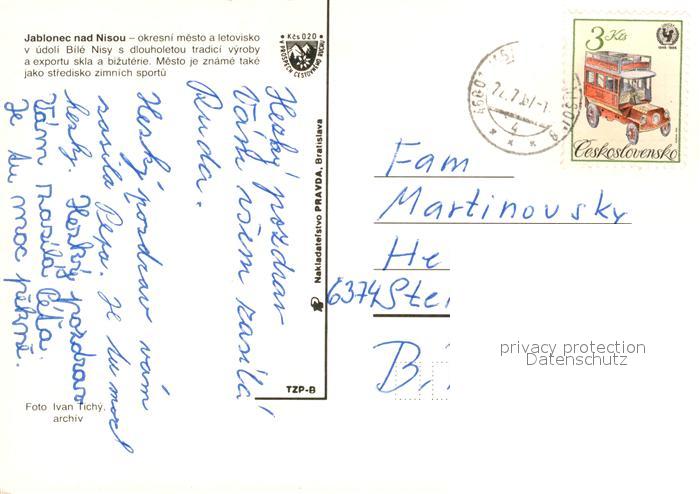 Jablonec nad Nisou – okresní město a letovisko
v údolí Bílé Nisy s dlouholetou tradicí výroby
a exportu skla a bižutérie. Město je známé také
jako středisko zimních sportů
Kčs 0.20
V PROSPĚCH CESTOVNÍHO RUCHU
Hezký pozdrav
Vám všem zasílá
Ruda.
Hezký pozdrav vám
zasílá Pepa. Je tu moc
hezky. Hezký pozdrav
Vám zasílá Péťa.
Je tu moc pěkně.
Foto Ivan Tichý,
archív
TZP-B
Nakladatelství PRAVDA, Bratislava
3 Kčs
Československo
Fam
Martinovsky
He
6374 Ste
B
privacy protection
Datenschutz